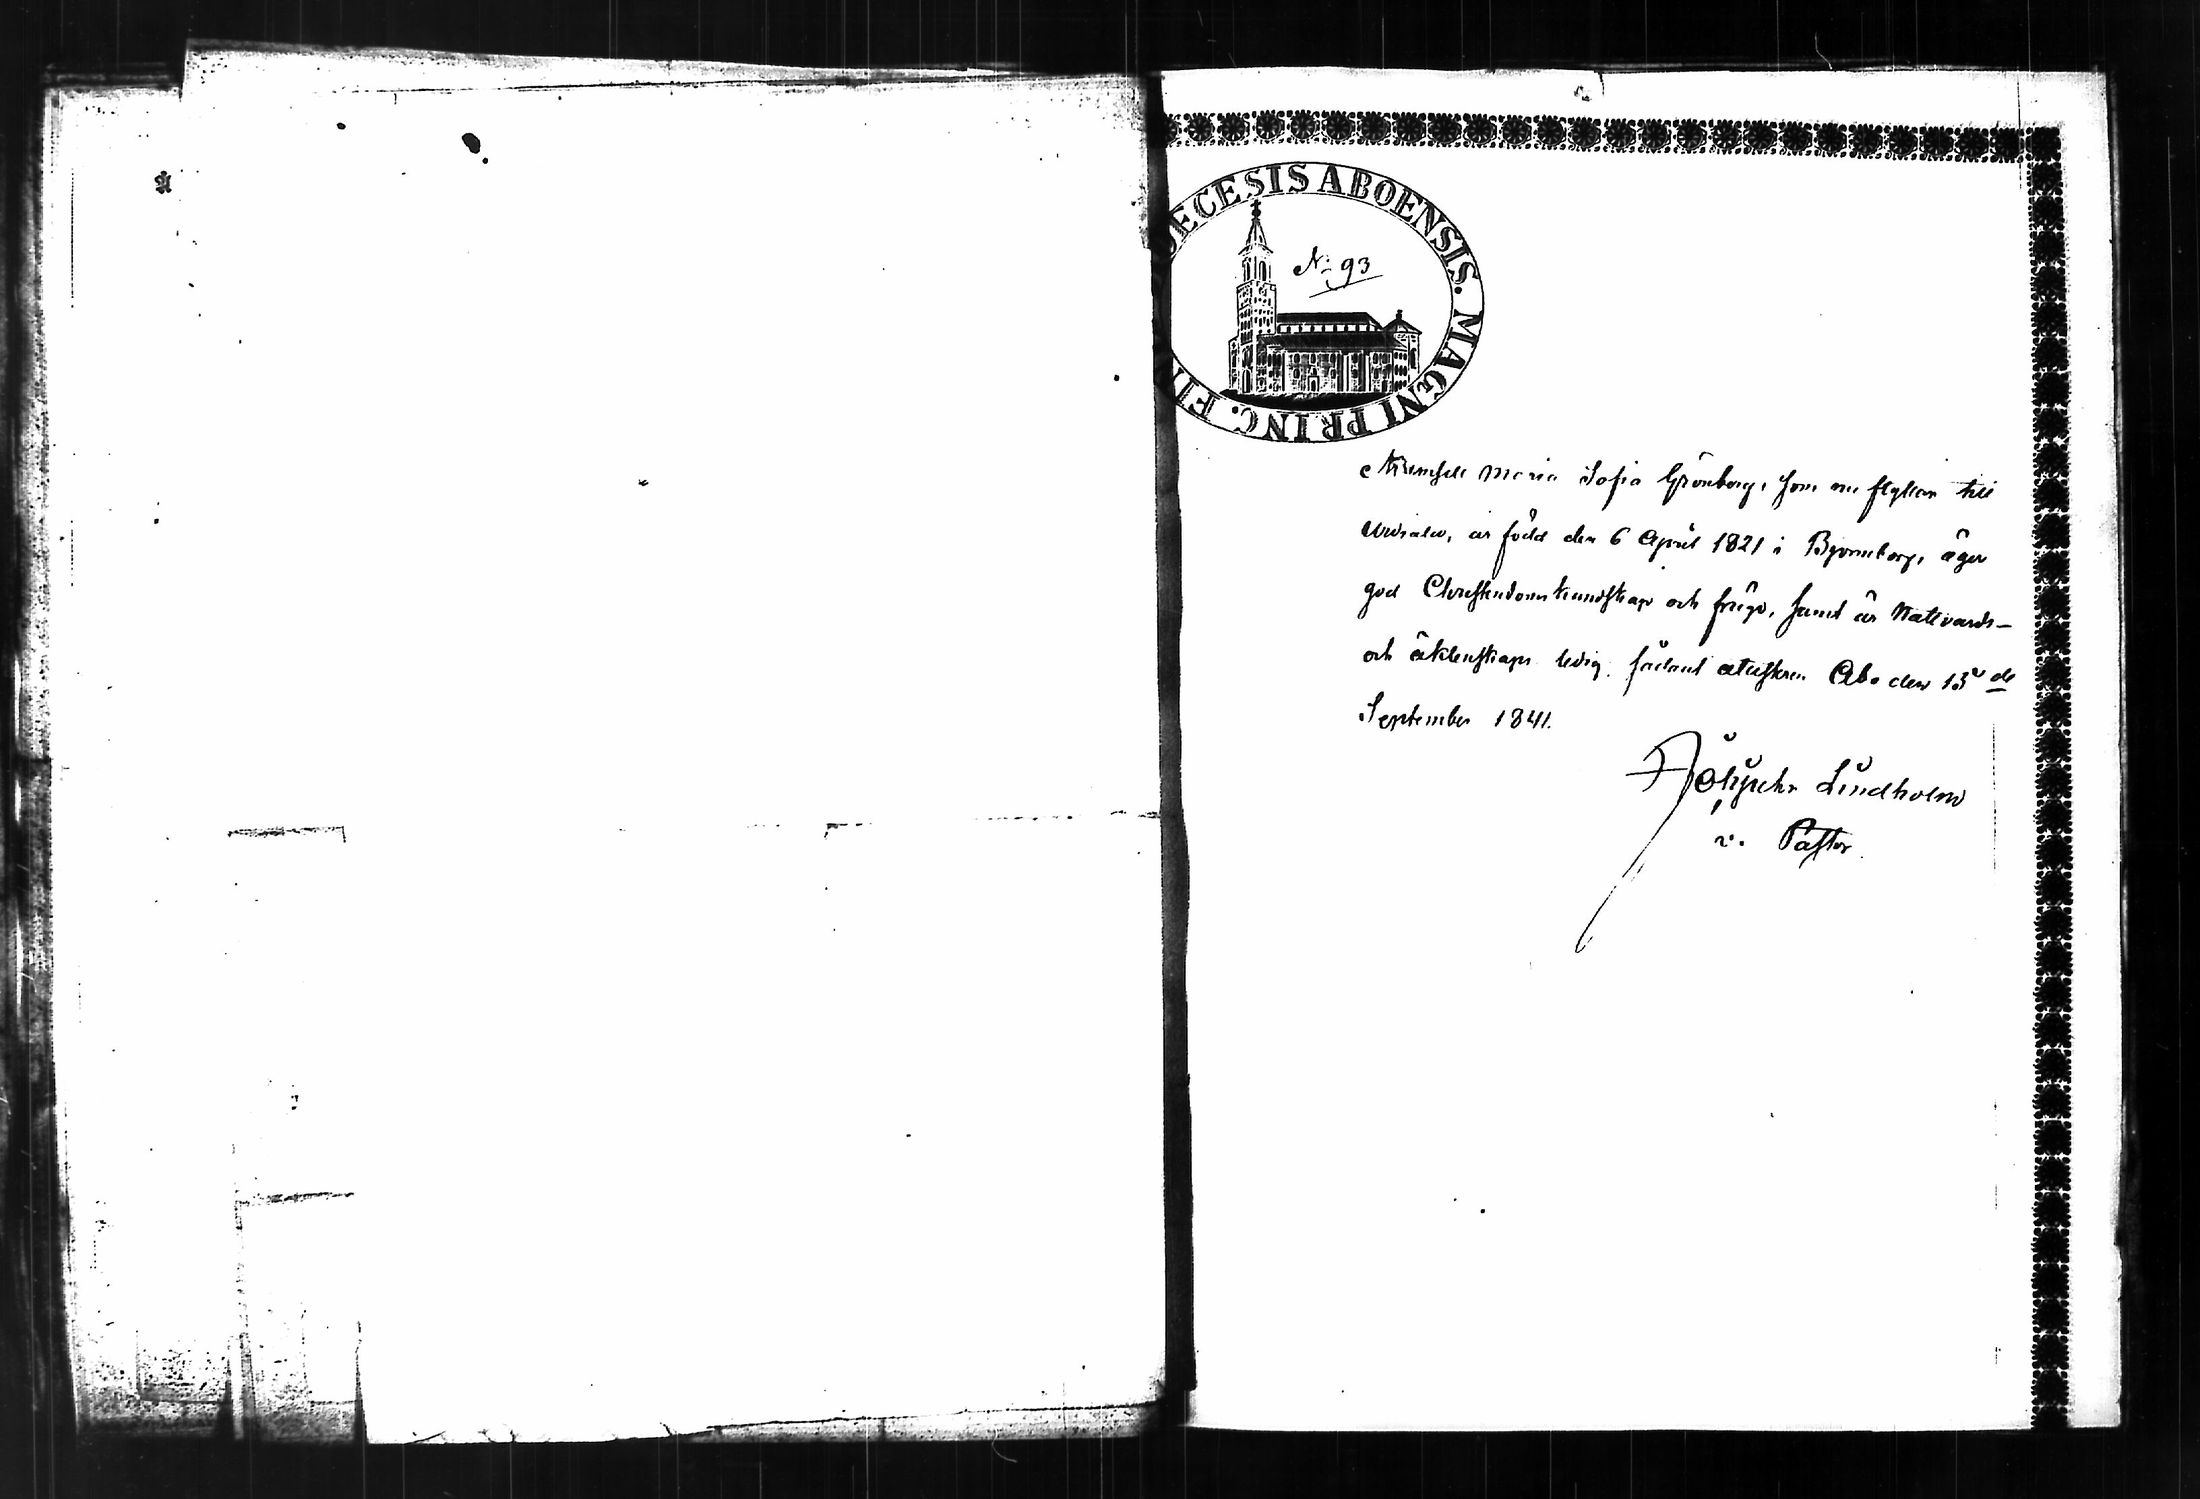 DIOECESIS ABOENSIS. MAGNI PRINC. FIN
N: 93
Maria Sofia Grönberg, som nu flyttar till
Urdiala, är född den 6 April 1821 i Björneborg, äger
god Christendomskundskap och frägd, samt är Nattvards-
och äktenskaps ledig, sådant attesteras. Åbo den 13 de
September 1841.
Lindholm
v. Pastor.